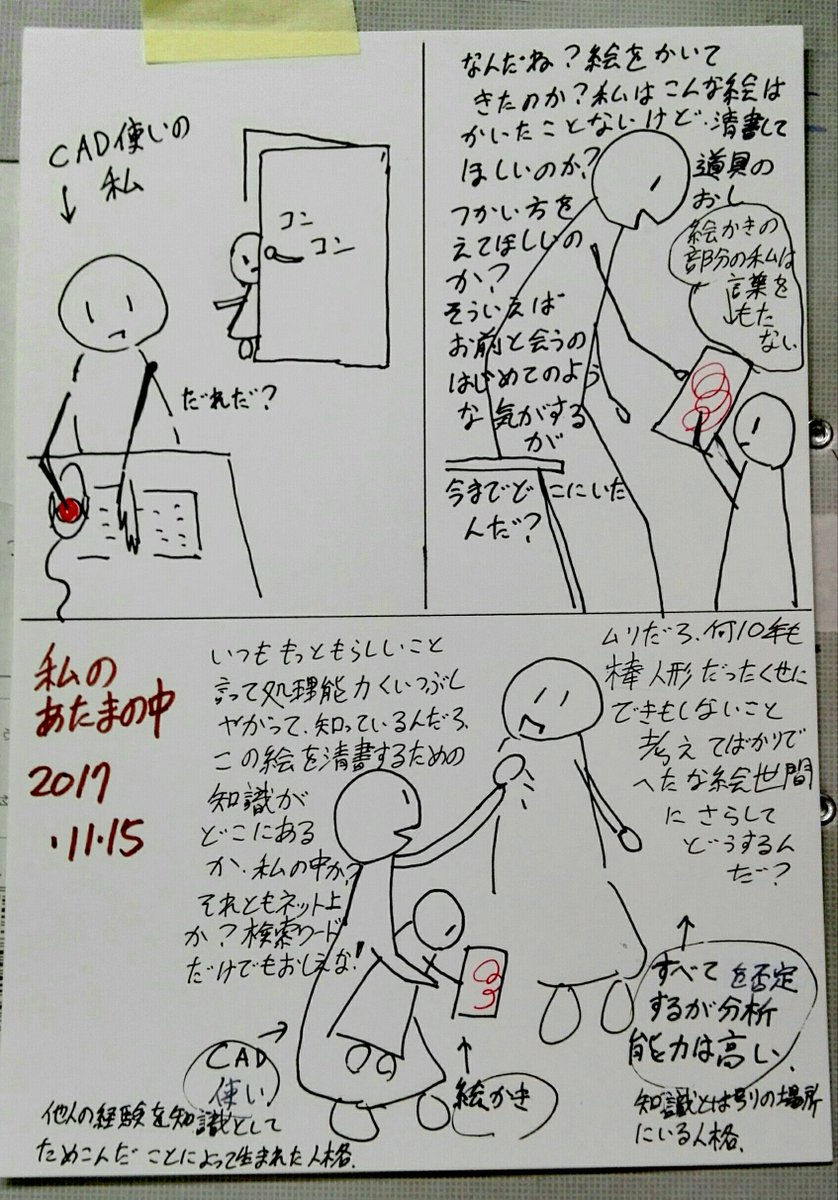 CAD使いの
私
コン
コン
だれだ?
なんだね?絵をかいて
きたのか?私はこんな絵は
かいたことないけど、清書して
ほしいのか?
道具の
つかい方を
おし
えてほしいの
か?
そういえば
お前と会うの
はじめてのよう
な気がする
が
今までどこにいた
んだ?
絵かきの
部分の私は
言葉を
もた
ない
私の
あたまの中
2017
・11・15
いつももっともらしいこと
言って処理能力くいつぶし
やがって、知っているんだろ、
この絵を清書するための
知識が
どこにある
か、私の中か?
それともネット上
か?検索ワード
だけでもおしえな!
ムリだろ、何10年も
棒人形だったくせに
できもしないこと
考えてばかりで
へたな絵世間
にさらして
どうするん
だ?
すべてを否定
するが分析
能力は高い、
知識とは別の場所
にいる人格、
CAD
使い
他人の経験を知識として
ためこんだことによって生まれた人格、
絵かき